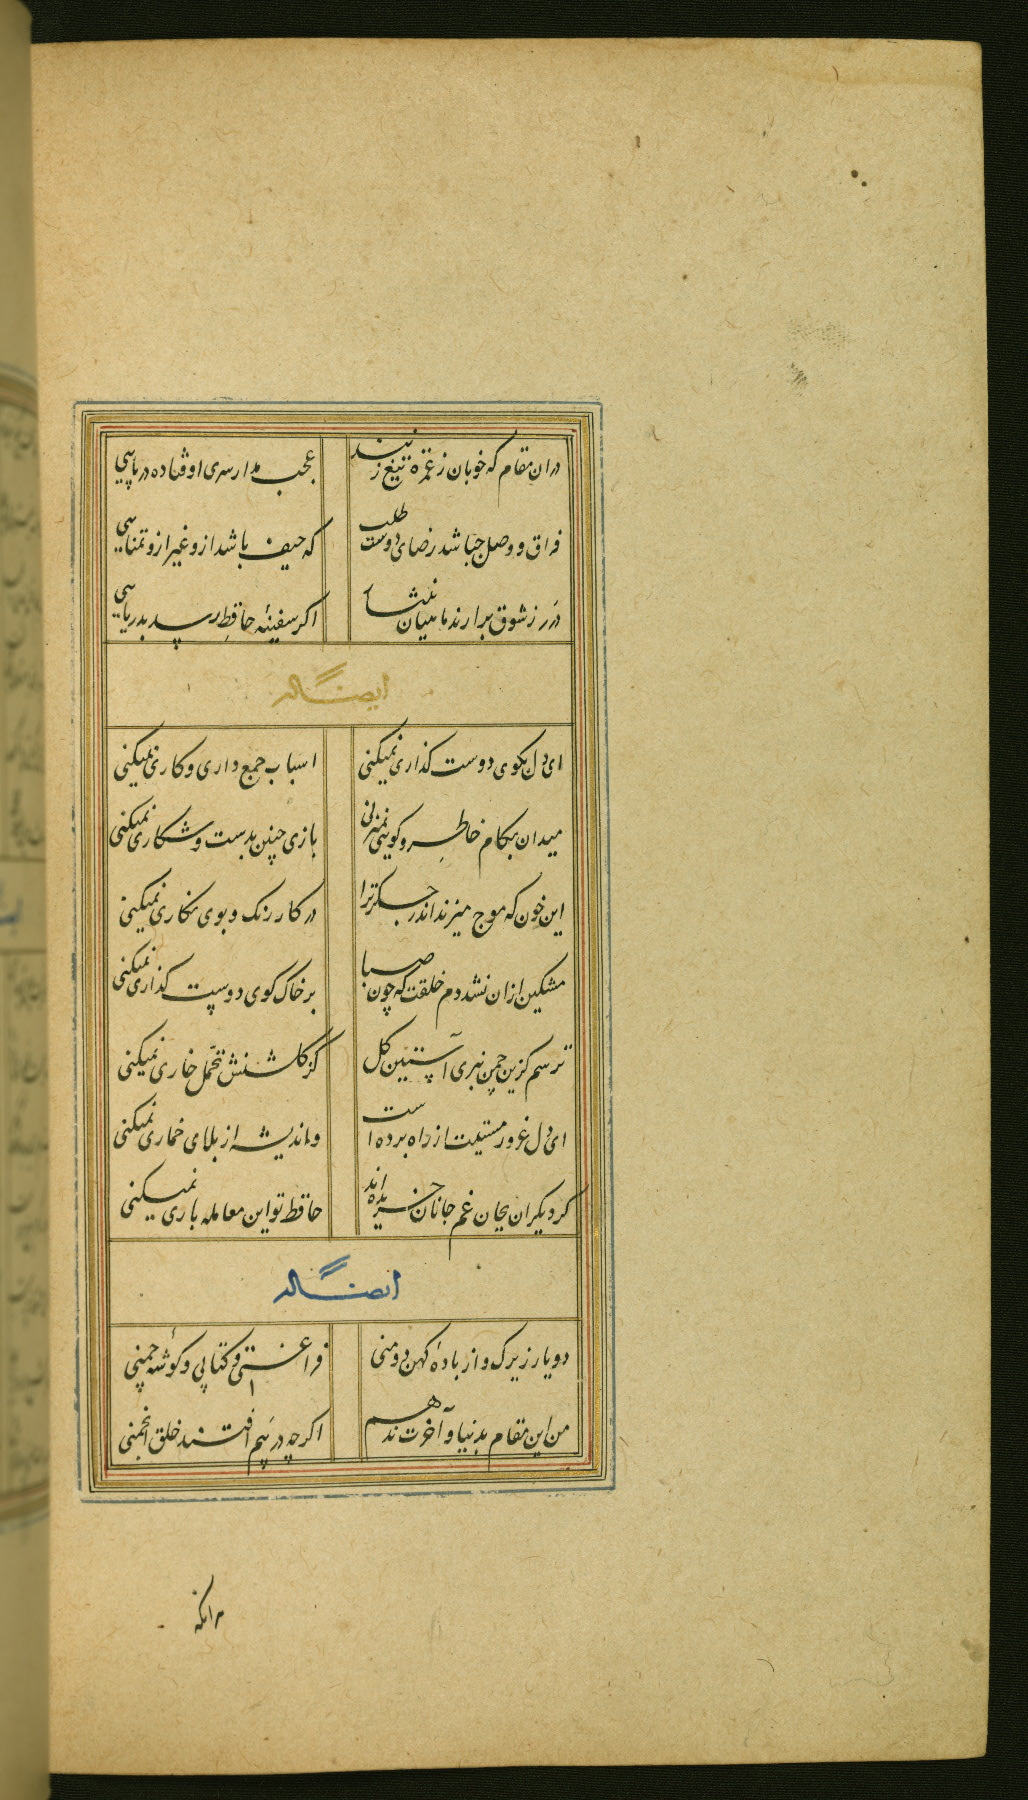 دران مقام که خوبان ز غمزه تیغ زنند
عجب مدار سری اوفتاده در پایی
فراق و وصل چه باشد رضای دوست طلب
که حیف باشد ازو غیر ازو تمنایی
درر ز شوق برارند ماهیان بنثار
اکر سفینهٔ حافظ رسد بدریایی
ایضا له
ای دل بکوی دوست کذاری نمیکنی
اسباب جمع داری و کاری نمیکنی
میدان بکام خاطر و کویی نمیزنی
بازی چنین بدست و شکاری نمیکنی
این خون که موج میزند اندر جکر ترا
در کار رنک و بوی نکاری نمیکنی
مشکین ازان نشد دم خلقت که چون صبا
بر خاک کوی دوست کذاری نمیکنی
ترسم کزین چمن نبری آستین کل
کز کلشنش تحمل خاری نمیکنی
ای دل غرور مستیت از راه برده است
واندیشه از بلای خماری نمیکنی
کر دیکران بجان غم جانان خریده اند
حافظ تو این معامله باری نمیکنی
ایضا له
دو یار زیرک و از بادهٔ کهن دو منی
فراغتی و کتابی و کوشهٔ چمنی
من این مقام بدنیا و آخرت ندهم
اکرچه در پیم افتند خلق انجمنی
هرانکه